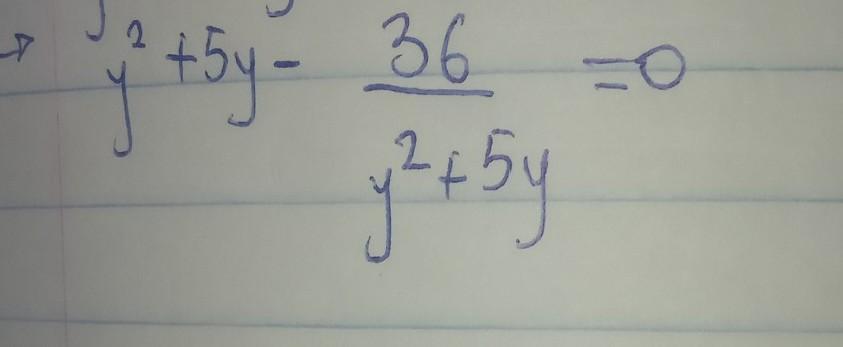 → y² + 5y - 36 / y² + 5y = 0